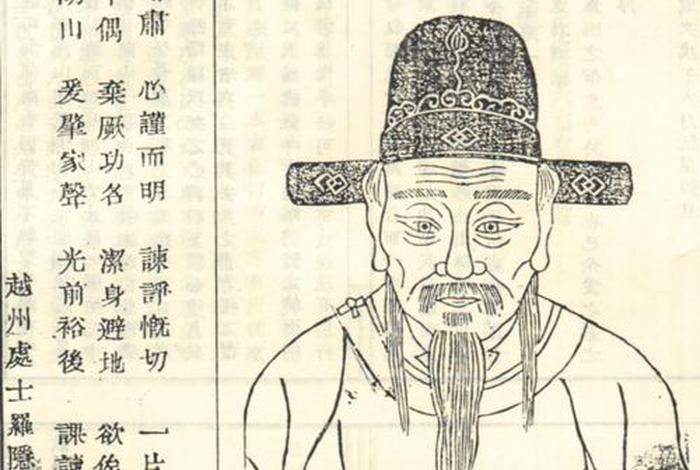 肅 心謹而明 諫諍慨切 一片
偶 棄厥功名 潔身避地 欲
山 爰肇家聲 光前裕後 課
越州處士羅隱